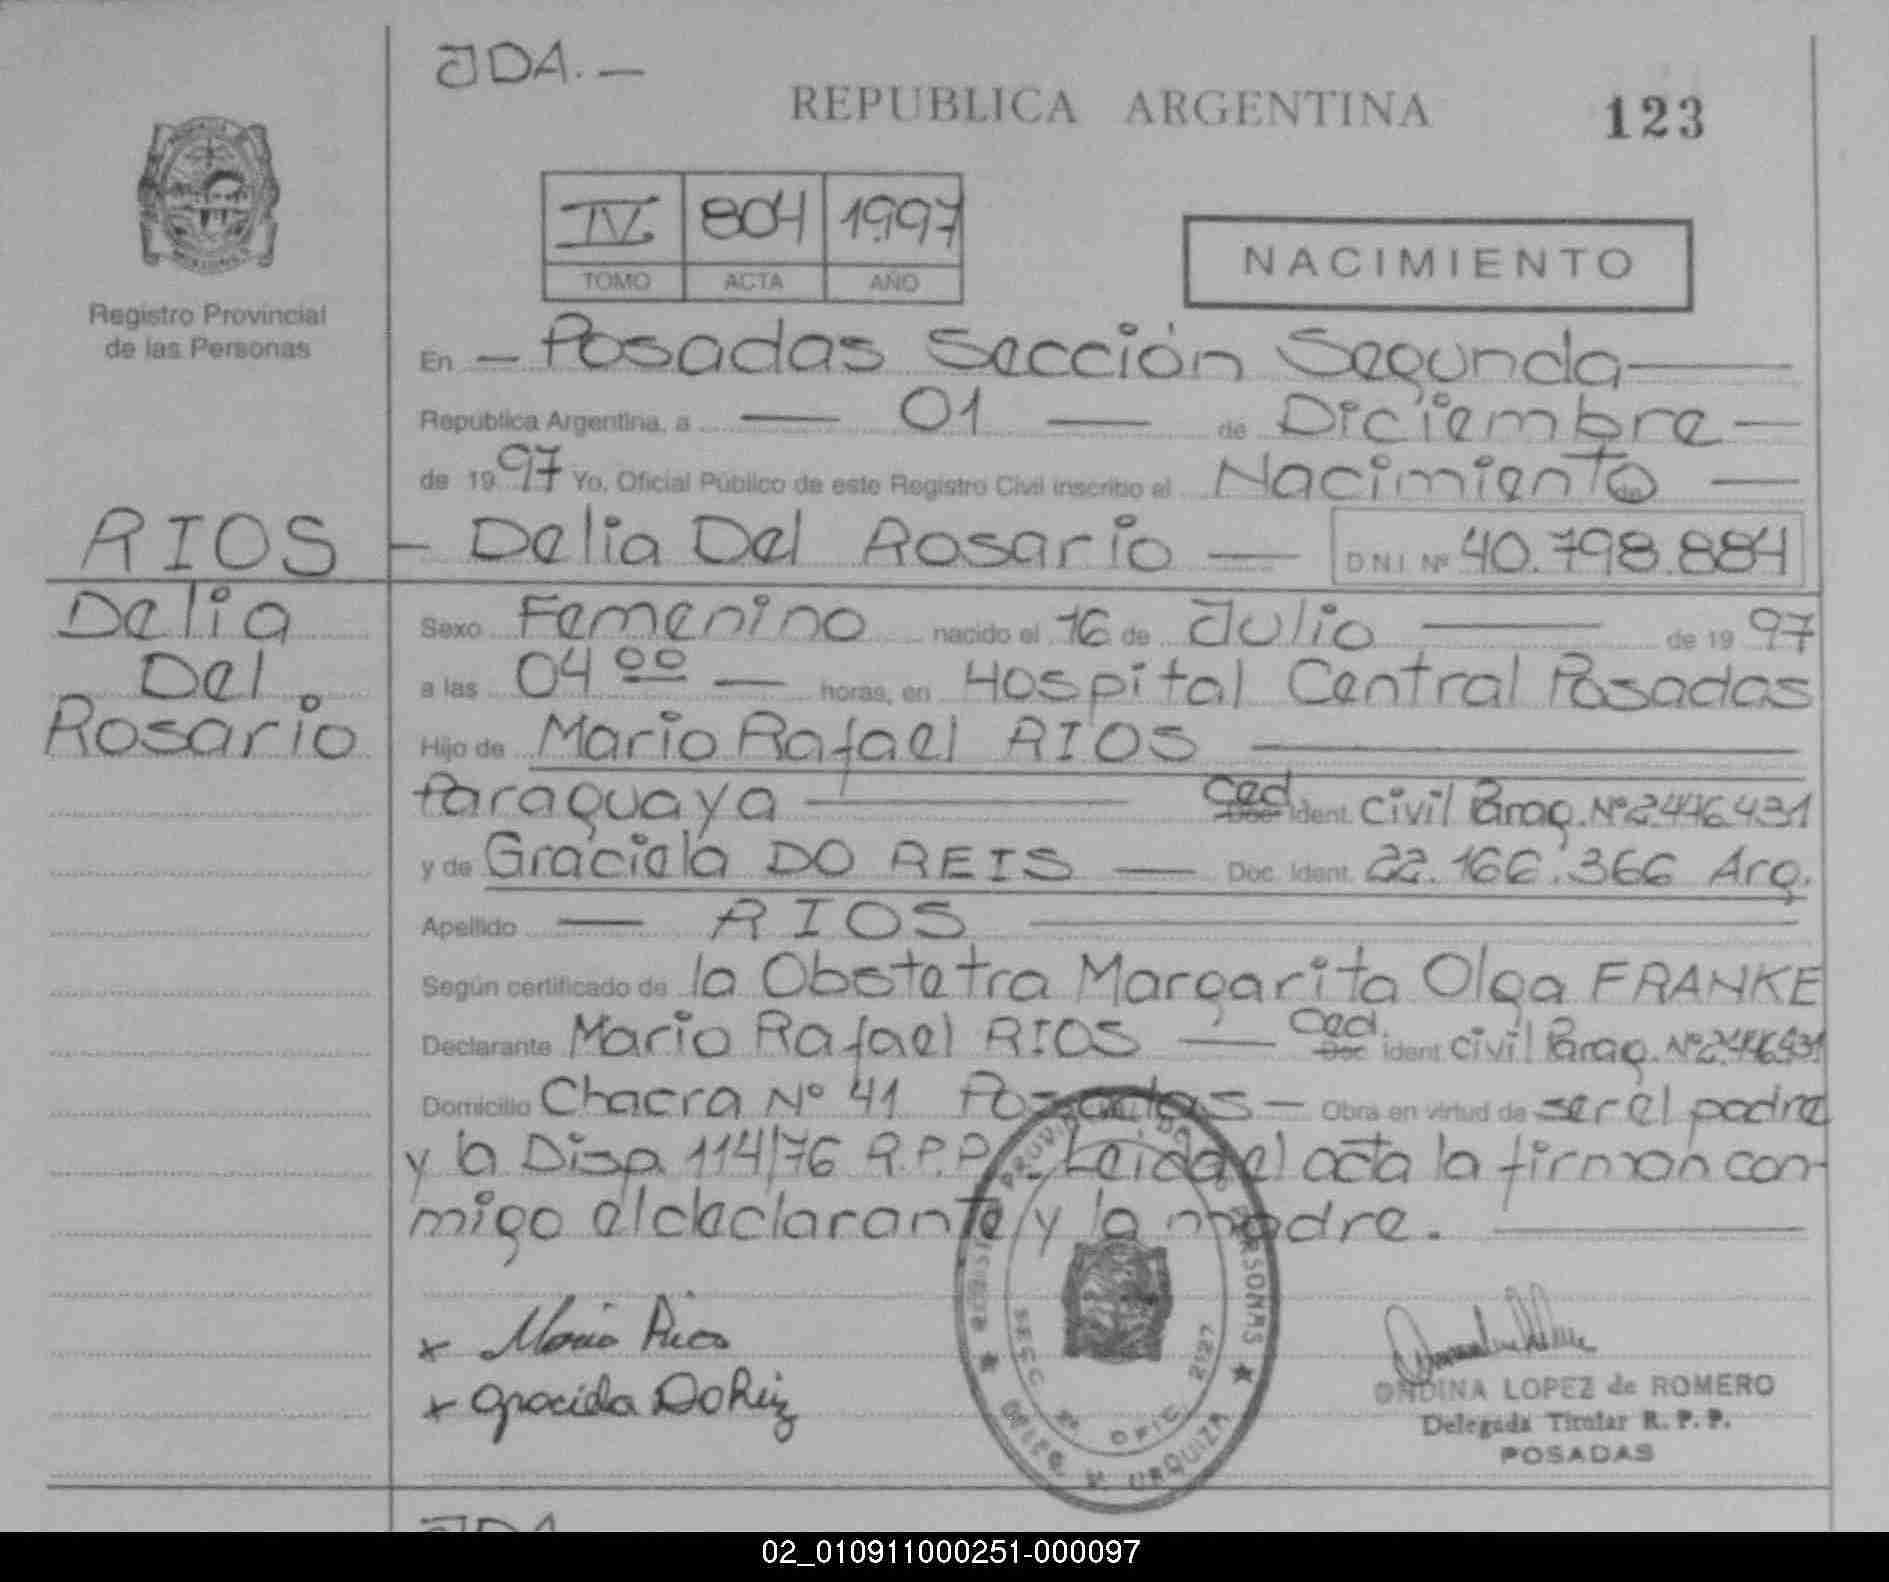 JDA.—
REPUBLICA ARGENTINA
123
IV 804 1997
TOMO ACTA AÑO
NACIMIENTO
Registro Provincial
de las Personas
En — Posadas Sección Segunda —
República Argentina, a — 01 — de Diciembre —
de 1997 Yo, Oficial Público de este Registro Civil inscribo el Nacimiento —
RIOS — Delia Del Rosario — DNI Nº 40.798.884
Delia
Del
Rosario
Sexo Femenino nacido el 16 de Julio — de 1997
a las 04 00 — horas, en Hospital Central Posadas
Hijo de Mario Rafael RIOS —
Paraguaya — Ced. Doc Ident. Civil Parag. Nº 2.446.431
y de Graciela DO REIS — Doc. Ident. 22.166.366 Arg.
Apellido — RIOS —
Según certificado de la Obstetra Margarita Olga FRANKE
Declarante Mario Rafael RIOS — Ced. Doc Ident Civil Parag. Nº 2.446.431
Domicilio Chacra Nº 41 Posadas — Obra en virtud de ser el padre
y la Disp. 114/76 R.P.P. Leida el acta la firman con-
migo el declarante y la madre. —
x Mario Rios
x Graciela Do Reiz
REGISTRO PROVINCIAL DE LAS PERSONAS
SECC 2ª OFIC. 2127
DELEG. V. URQUIZA
ONDINA LOPEZ de ROMERO
Delegada Titular R. P. P.
POSADAS
JDA
02_010911000251-000097